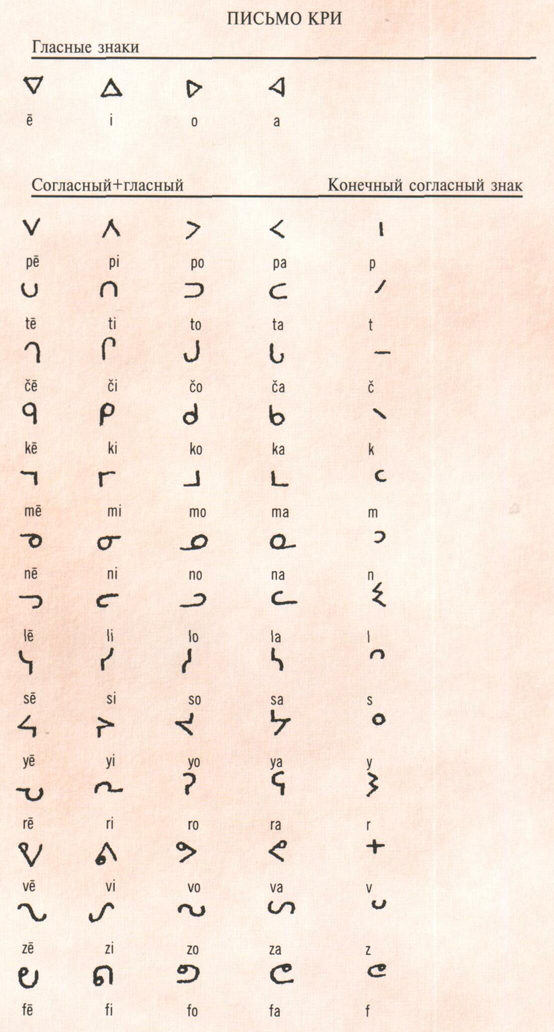 ПИСЬМО КРИ
Гласные знаки
ᐁ ᐃ ᐅ ᐊ
ē i o a
Согласный+гласный Конечный согласный знак
ᐯ ᐱ ᐳ ᐸ ᑊ
pē pi po pa p
ᑌ ᑎ ᑐ ᑕ ᐟ
tē ti to ta t
ᒉ ᒋ ᒍ ᒐ ᐨ
čē či čo ča č
ᑫ ᑭ ᑯ ᑲ ᐠ
kē ki ko ka k
ᒣ ᒥ ᒧ ᒪ ᒼ
mē mi mo ma m
ᓀ ᓂ ᓄ ᓇ ᐣ
nē ni no na n
ᓓ ᓕ ᓗ ᓚ ᓬ
lē li lo la l
ᓭ ᓯ ᓱ ᓴ ᐢ
sē si so sa s
ᔦ ᔨ ᔪ ᔭ ᐤ
yē yi yo ya y
ᕃ ᕆ ᕈ ᕋ ᕒ
rē ri ro ra r
ᕓ ᕕ ᕗ ᕙ ᕀ
vē vi vo va v
ᔐ ᔑ ᔓ ᔕ ᐡ
zē zi zo za z
fē fi fo fa f